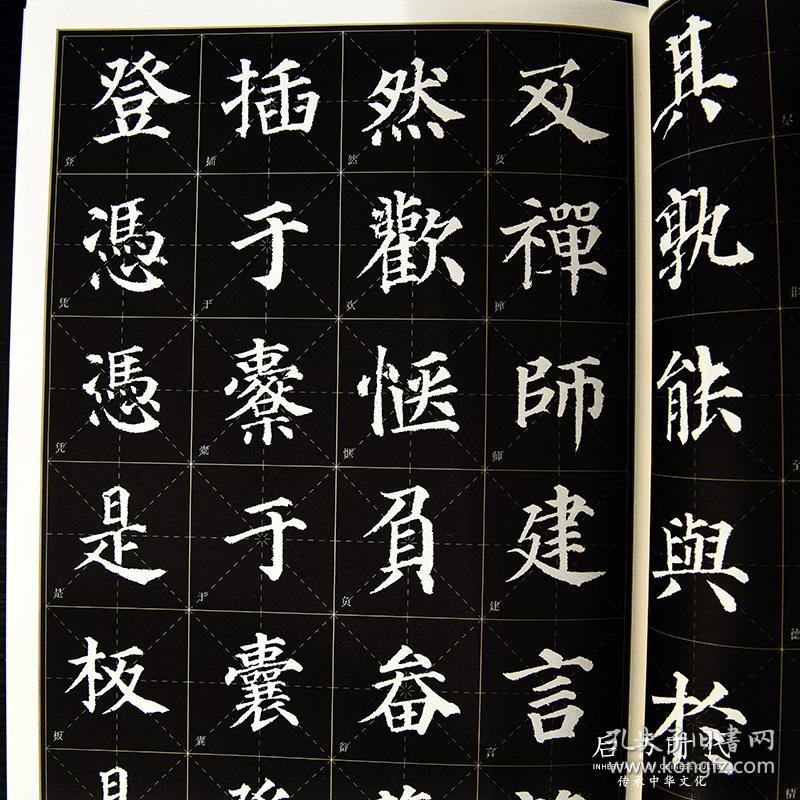 其孰能與於
及禪師建言
然歡愜負畚
插于橐于囊登
登憑憑是板是
及 禅 师 建 言
然 欢 惬 负 畚
插 于 橐 于 囊
登 凭 凭 是 板
孔夫子旧书网
传承中华文化